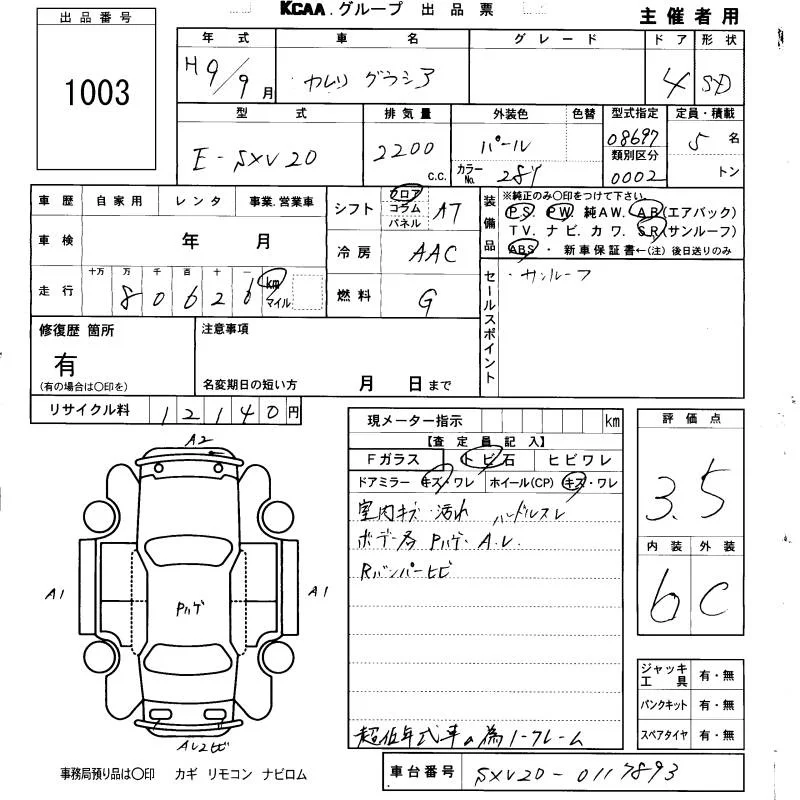 KCAA.グループ 出品票
主催者用
出品番号
1003
年式
H9/9月
車名
カムリ グラシア
グレード
ドア
4
形状
SD
型式
E-SXV20
排気量
2200 C.C.
外装色
パール
色替
カラーNo.
型式指定
08697
類別区分
0002
定員・積載
5名
トン
車歴 自家用 レンタ 事業.営業車
車検 年 月
走行 十万 万 千 百 十 一
8 0 6 2 km
マイル
シフト フロア コラム パネル AT
冷房 AAC
燃料 G
装備品
※純正のみ○印をつけて下さい。
PS. PW. 純AW. AB(エアバック)
TV. ナビ. カワ. SR(サンルーフ)
ABS ・ 新車保証書←(注) 後日送りのみ
セールスポイント
・サンルーフ
修復歴 箇所
有
(有の場合は○印を)
注意事項
名変期日の短い方 月 日まで
リサイクル料 12140円
現メーター指示 km
【査定員記入】
Fガラス トビ石 ヒビワレ
ドアミラー キズ・ワレ ホイール(CP) キズ・ワレ
室内キズ・汚れ ハンドルスレ
ボデー各 Pハゲ A.U.
Rバンパーヒビ
超低年式車の為ノークレーム
評価点
3.5
内装 外装
6 C
ジャッキ工具 有・無
パンクキット 有・無
スペアタイヤ 有・無
A2
A1
A1
Pハゲ
事務局預り品は○印 カギ リモコン ナビロム
車台番号 SXV20-0117893